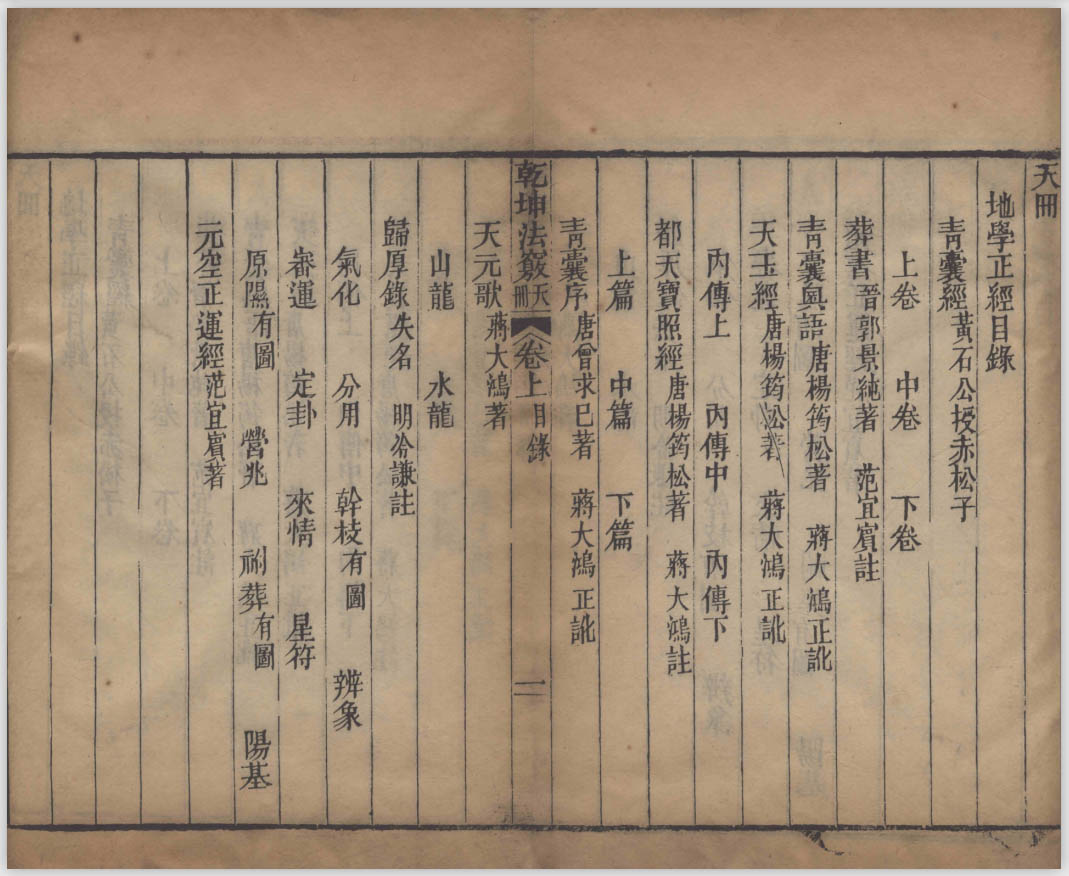 天冊
地學正經目錄
青囊經黃石公授赤松子
上卷 中卷 下卷
葬書晉郭景純著 范宜賓註
青囊奧語唐楊筠松著 蔣大鴻正訛
天玉經唐楊筠松著 蔣大鴻正訛
內傳上 內傳中 內傳下
都天寶照經唐楊筠松著 蔣大鴻註
上篇 中篇 下篇
青囊序唐曾求己著 蔣大鴻正訛
乾坤法竅天冊 卷上目錄 一
天元歌蔣大鴻著
山龍 水龍
歸厚錄失名 明冷謙註
氣化 分用 幹枝有圖 辨象
審運 定卦 來情 星符
原隰有圖 營兆 祔葬有圖 陽基
元空正運經范宜賓著